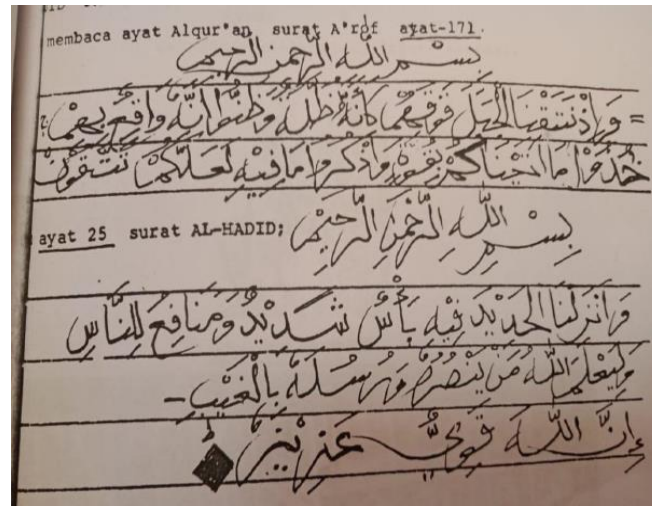 membaca ayat Alqur'an surat A'rof ayat-171.
بِسْمِ اللّٰهِ الرَّحْمٰنِ الرَّحِيْمِ
= وَإِذْ نَتَقْنَا الْجَبَلَ فَوْقَهُمْ كَأَنَّهُ ظُلَّةٌ وَظَنُّوا أَنَّهُ وَاقِعٌ بِهِمْ
خُذُوْا مَا اٰتَيْنَاكُمْ بِقُوَّةٍ وَاذْكُرُوْا مَا فِيْهِ لَعَلَّكُمْ تَتَّقُوْنَ
ayat 25 surat AL-HADID; بِسْمِ اللّٰهِ الرَّحْمٰنِ الرَّحِيْمِ
وَاَنْزَلْنَا الْحَدِيْدَ فِيْهِ بَأْسٌ شَدِيْدٌ وَمَنَافِعُ لِلنَّاسِ
وَلِيَعْلَمَ اللّٰهُ مَنْ يَنْصُرُهُ وَرُسُلَهُ بِالْغَيْبِ –
إِنَّ اللّٰهَ قَوِيٌّ عَزِيْزٌ